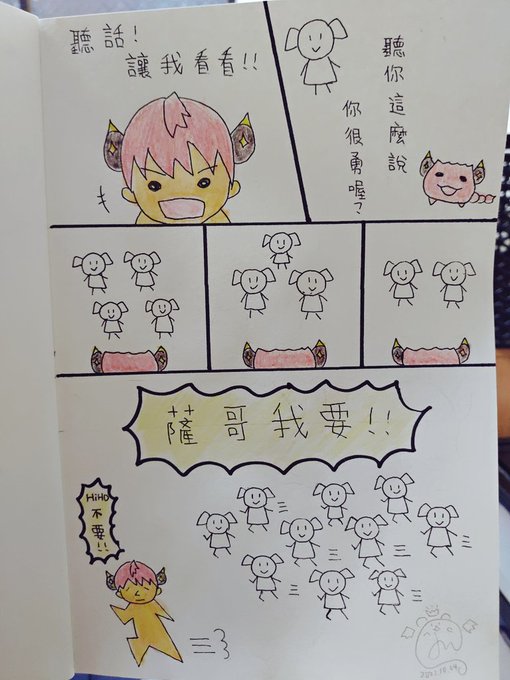 聽話!
讓我看看!!
聽你這麼說
你很勇喔?
薩哥我要!!
HiHO
不要!!
2021.10.04